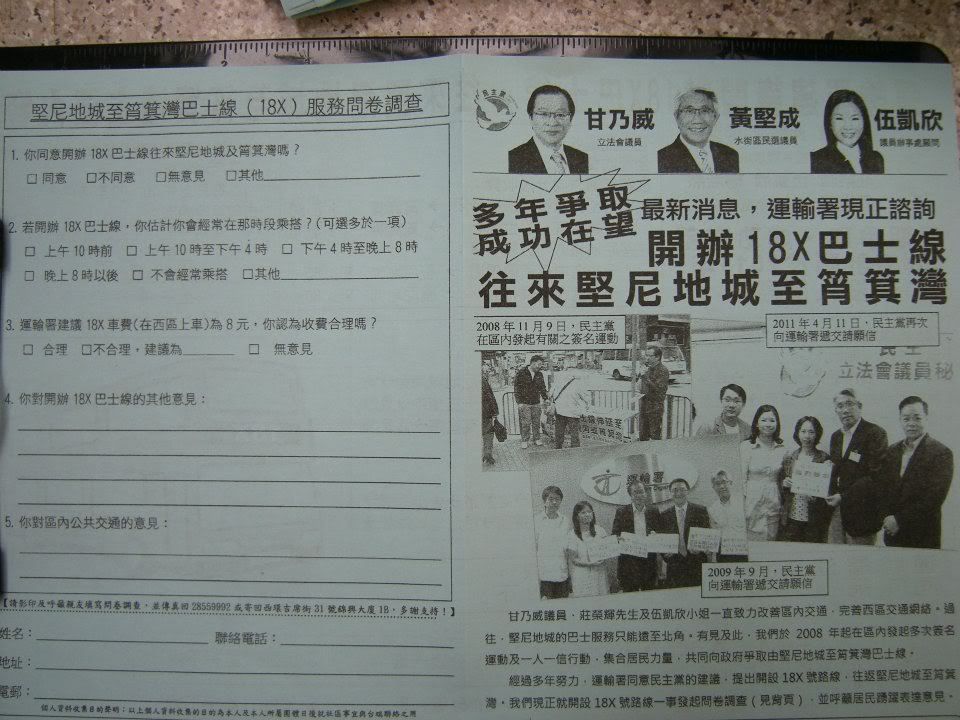 堅尼地城至筲箕灣巴士線（18X）服務問卷調查
1. 你同意開辦 18X 巴士線往來堅尼地城及筲箕灣嗎？
□ 同意 □不同意 □無意見 □其他
2. 若開辦 18X 巴士線，你估計你會經常在那時段乘搭？(可選多於一項)
□ 上午 10 時前 □ 上午 10 時至下午 4 時 □ 下午 4 時至晚上 8 時
□ 晚上 8 時以後 □ 不會經常乘搭 □其他
3. 運輸署建議 18X 車費(在西區上車)為 8 元，你認為收費合理嗎？
□ 合理 □不合理，建議為 □ 無意見
4. 你對開辦 18X 巴士線的其他意見：
5. 你對區內公共交通的意見：
【請影印及呼籲親友填寫問卷調查，並傳真回 28559992 或寄回西環吉席街 31 號錦興大廈 1B，多謝支持！】
姓名： 聯絡電話：
地址：
電郵：
個人資料收集目的聲明：以上個人資料收集的目的為本人及本人所屬團體日後就社區事宜與台端聯絡之用
民主黨
甘乃威
立法會議員
黃堅成
水街區民選議員
伍凱欣
議員辦事處顧問
多年爭取
成功在望
最新消息，運輸署現正諮詢
開辦18X巴士線
往來堅尼地城至筲箕灣
2008 年 11 月 9 日，民主黨
在區內發起有關之簽名運動
2011 年 4 月 11 日，民主黨再次
向運輸署遞交請願信
民主
立法會議員秘
運輸署
2009 年 9 月，民主黨
向運輸署遞交請願信
甘乃威議員，莊榮輝先生及伍凱欣小姐一直致力改善區內交通，完善西區交通網絡。過
往，堅尼地城的巴士服務只能遠至北角。有見及此，我們於 2008 年起在區內發起多次簽名
運動及一人一信行動，集合居民力量，共同向政府爭取由堅尼地城至筲箕灣巴士線。
經過多年努力，運輸署同意民主黨的建議，提出開設 18X 號路線，往返堅尼地城至筲箕
灣。我們現正就開設 18X 號路線一事發起問卷調查 (見背頁)，並呼籲居民踴躍表達意見。